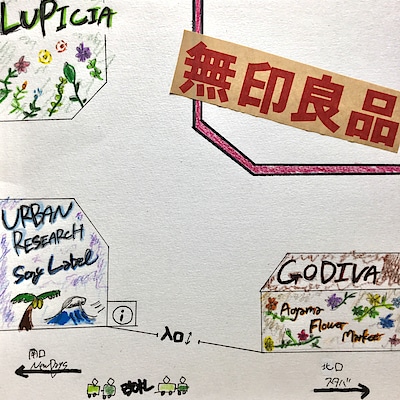 LUPICIA
無印良品
URBAN
RESEARCH
Sonny Label
GODIVA
Aoyama
Flower
Market
i
入口
南口
NewDays
北口
スタバ